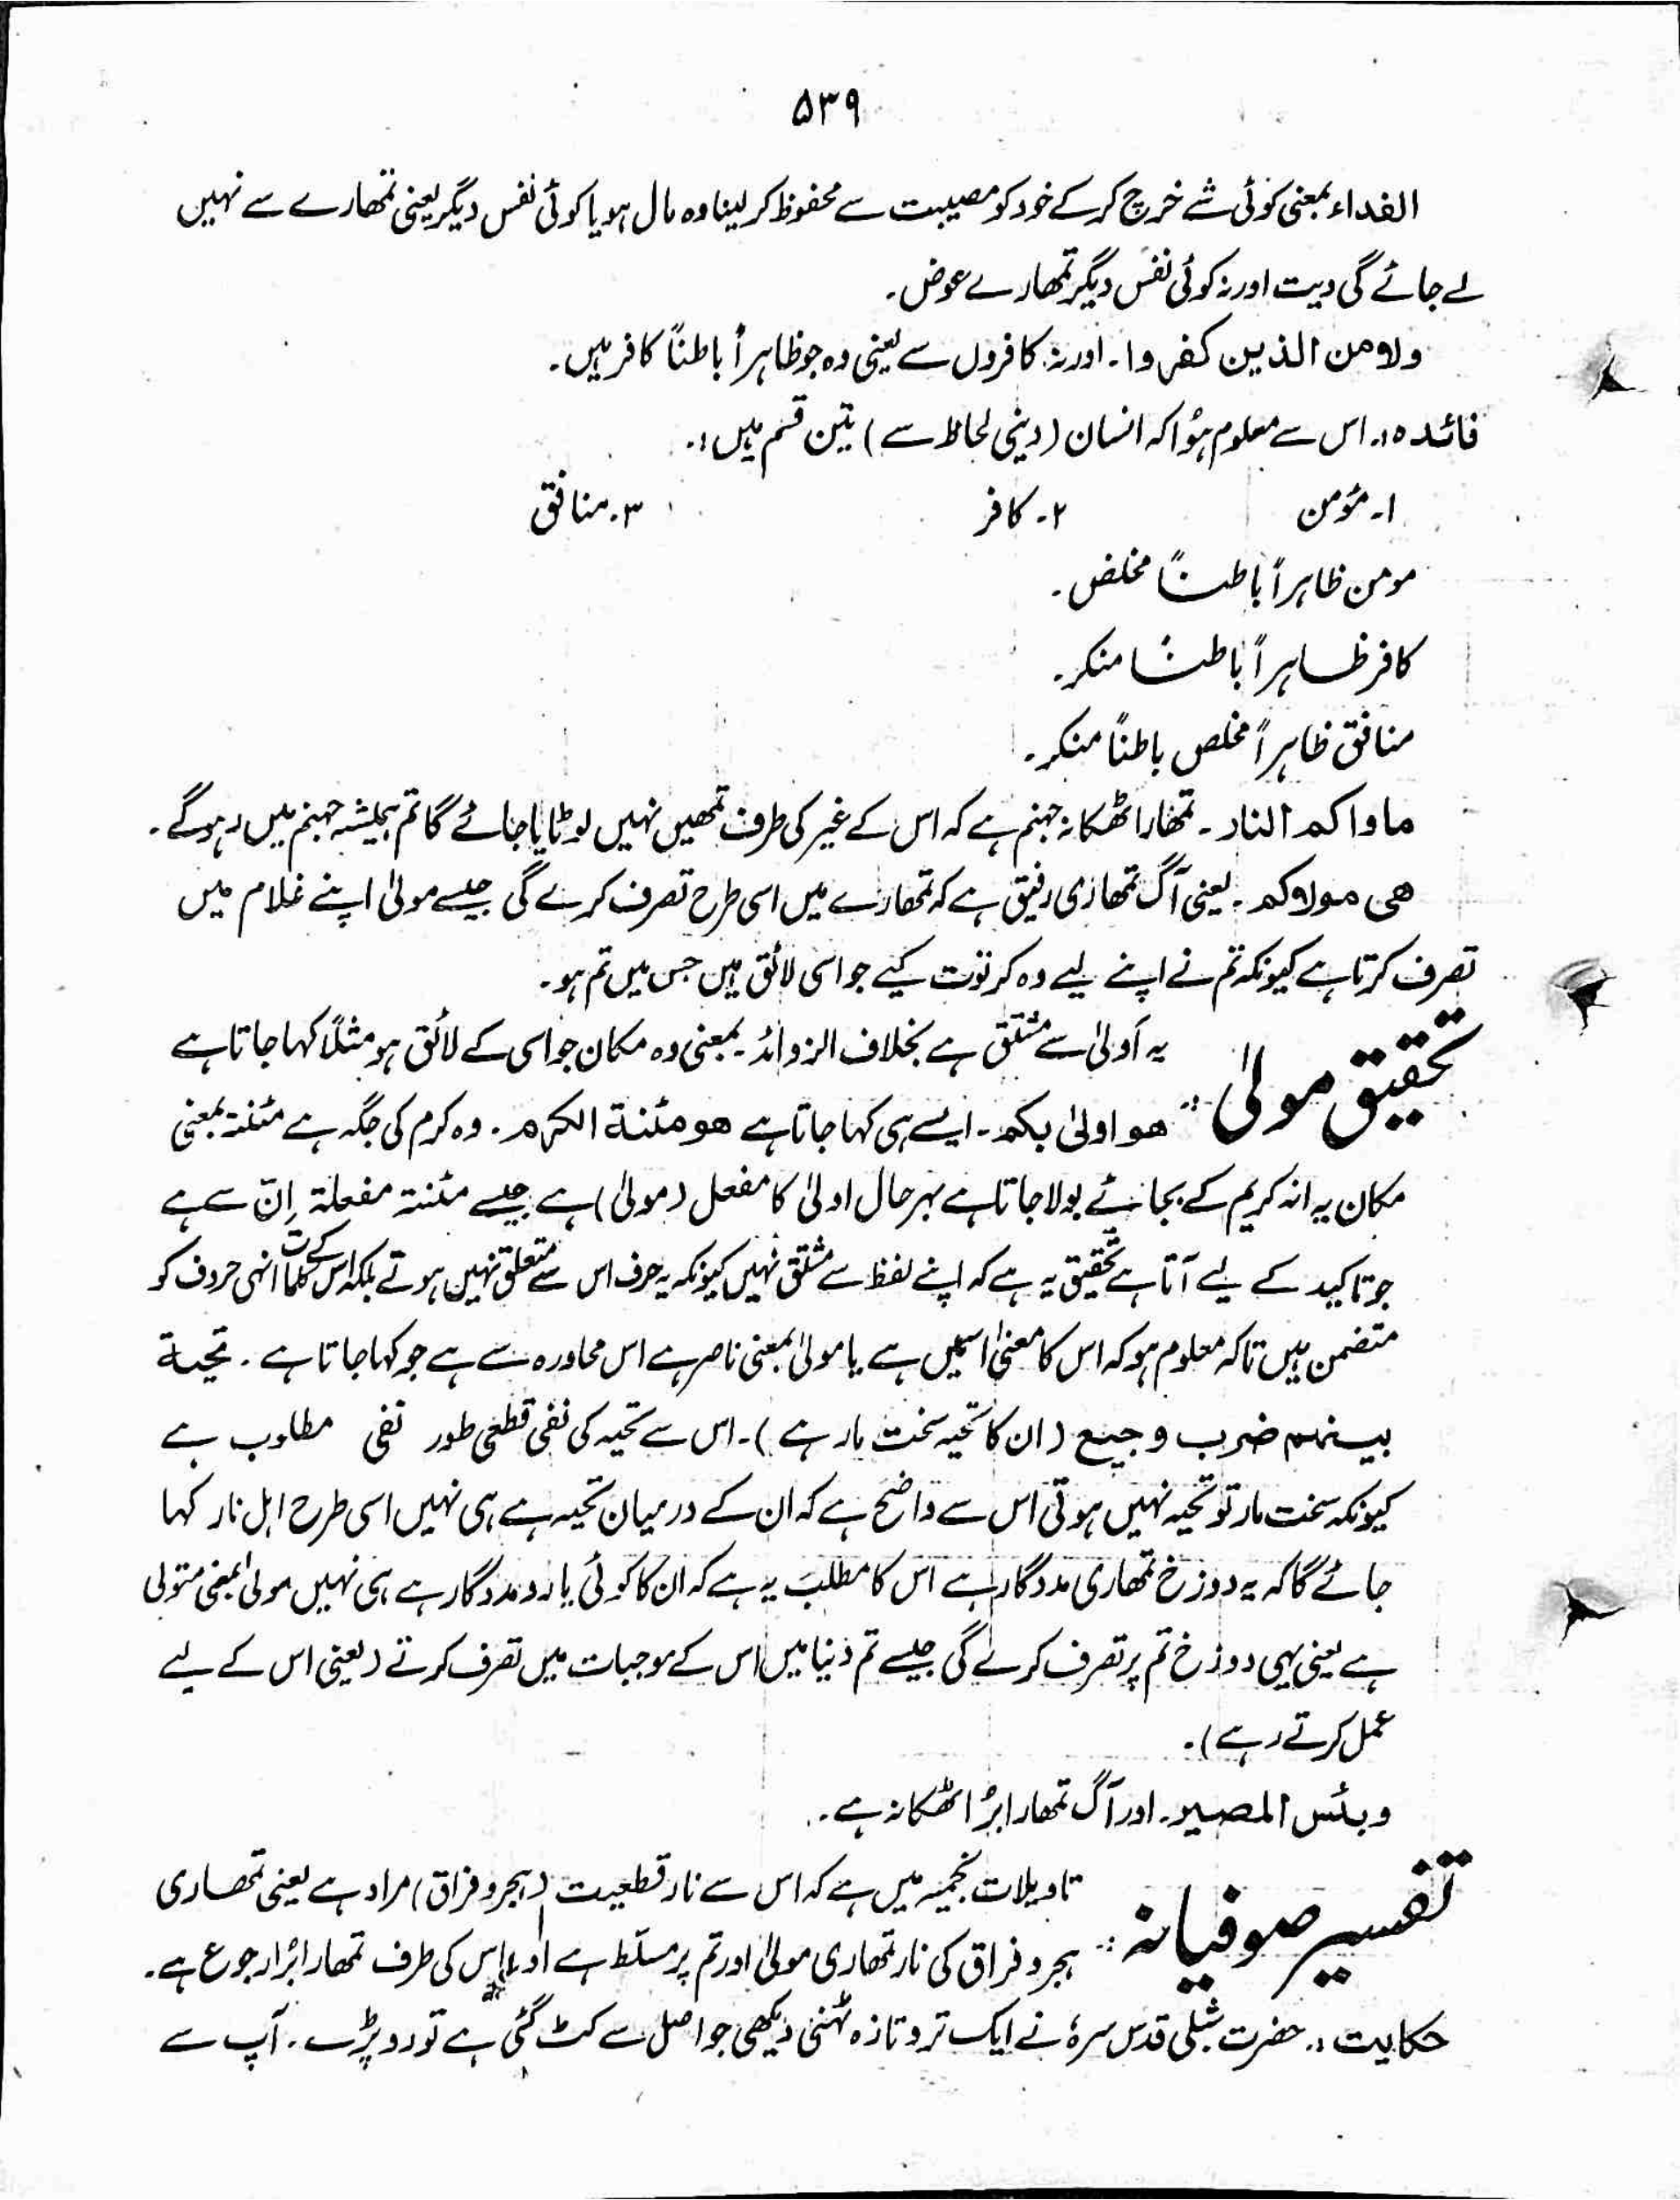 ۵۳۹
الفداء بمعنی کوئی شے خرچ کرکے خود کو مصیبت سے محفوظ کر لینا وہ مال ہو یا کوئی نفس دیگر یعنی تمھارے سے نہیں
لے جائے گی دیت اور نہ کوئی نفس دیگر تمھارے عوض۔
ولا من الذین کفروا۔ اور نہ کافروں سے یعنی وہ جو ظاہراً باطناً کافر ہیں۔
فائدہ:۔ اس سے معلوم ہُوا کہ انسان (دینی لحاظ سے) تین قسم ہیں:۔
۱۔ مؤمن ۲۔ کافر ۳۔ منافق
مومن ظاہراً باطناً مخلص۔
کافر ظاہراً باطناً منکر۔
منافق ظاہراً مخلص باطناً منکر۔
ماواکم النار۔ تمھارا ٹھکانہ جہنم ہے کہ اس کے غیر کی طرف تمھیں نہیں لوٹایا جائے گا تم ہمیشہ جہنم میں رہو گے۔
ھی مولاکم۔ یعنی آگ تمھاری رفیق ہے کہ تمھارے میں اسی طرح تصرف کرے گی جیسے مولیٰ اپنے غلام میں
تصرف کرتا ہے کیونکہ تم نے اپنے لیے وہ کرتوت کیے جو اسی لائق ہیں جس میں تم ہو۔
تحقیق مولیٰ:۔ یہ اَولیٰ سے مشتق ہے بخلاف الزوائد۔ بمعنی وہ مکان جو اسی کے لائق ہو مثلاً کہا جاتا ہے
ھو اولیٰ بکم۔ ایسے ہی کہا جاتا ہے ھو مئنة الکرم۔ وہ کرم کی جگہ ہے مئنة بمعنی
مکان یہ انہ کریم کے بجائے بولا جاتا ہے بہرحال اولیٰ کا مفعل (مولیٰ) ہے جیسے مئنة مفعلة اِنّ سے ہے
جو تاکید کے لیے آتا ہے تحقیق یہ ہے کہ اپنے لفظ سے مشتق نہیں کیونکہ یہ حرف اس سے متعلق نہیں ہوتے بلکہ اس کے کلمات انہی حروف کو
متضمن ہیں تاکہ معلوم ہو کہ اس کا معنیٰ اسمیں ہے یا مولیٰ بمعنی ناصر ہے اس محاورہ سے ہے جو کہا جاتا ہے۔ تحیة
بینہم ضرب وجیع (ان کا تحیہ سخت مار ہے)۔ اس سے تحیہ کی نفی قطعی طور نفی مطلوب ہے
کیونکہ سخت مار تو تحیہ نہیں ہوتی اس سے واضح ہے کہ ان کے درمیان تحیہ ہے ہی نہیں اسی طرح اہل نار کہا
جائے گا کہ یہ دوزخ تمھاری مددگار ہے اس کا مطلب یہ ہے کہ ان کا کوئی یار و مددگار ہے ہی نہیں مولیٰ بمعنی متولی
ہے یعنی یہی دوزخ تم پر تصرف کرے گی جیسے تم دنیا میں اس کے موجبات میں تصرف کرتے (یعنی اس کے لیے
عمل کرتے رہے)۔
وبئس المصیر۔ اور آگ تمھارا بُرا ٹھکانہ ہے۔
تفسیر صوفیانہ:۔ تاویلات نجمیہ میں ہے کہ اس سے نار قطعیت (ہجر و فراق) مراد ہے یعنی تمھاری
ہجر و فراق کی نار تمھاری مولیٰ اور تم پر مسلط ہے اور اس کی طرف تمھارا بُرا رجوع ہے۔
حکایت:۔ حضرت شبلی قدس سرہٗ نے ایک تر و تازہ ٹہنی دیکھی جو اصل سے کٹ گئی ہے تو رو پڑے۔ آپ سے